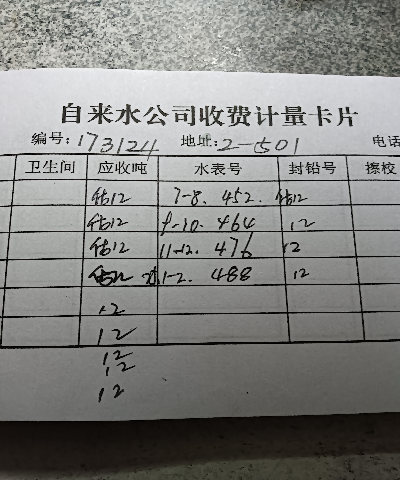 自来水公司收费计量卡片
编号:173124 地址:2-501 电话
卫生间 应收吨 水表号 封铅号 擦校
估12 7-8. 452. 估12
9-10. 464 12
估12 11-12. 476 12
1-2. 488 12
12
12
12
12
12